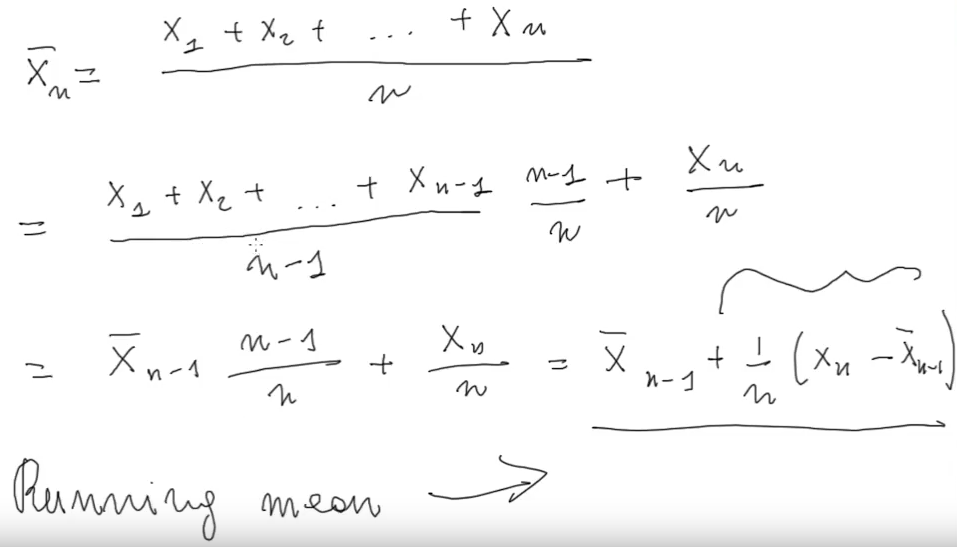 X̄ₙ = (X₁ + X₂ + ... + Xₙ) / n
= (X₁ + X₂ + ... + Xₙ₋₁) / (n-1) (n-1)/n + Xₙ/n
= X̄ₙ₋₁ (n-1)/n + Xₙ/n = X̄ₙ₋₁ + 1/n (Xₙ - X̄ₙ₋₁)
Running mean →